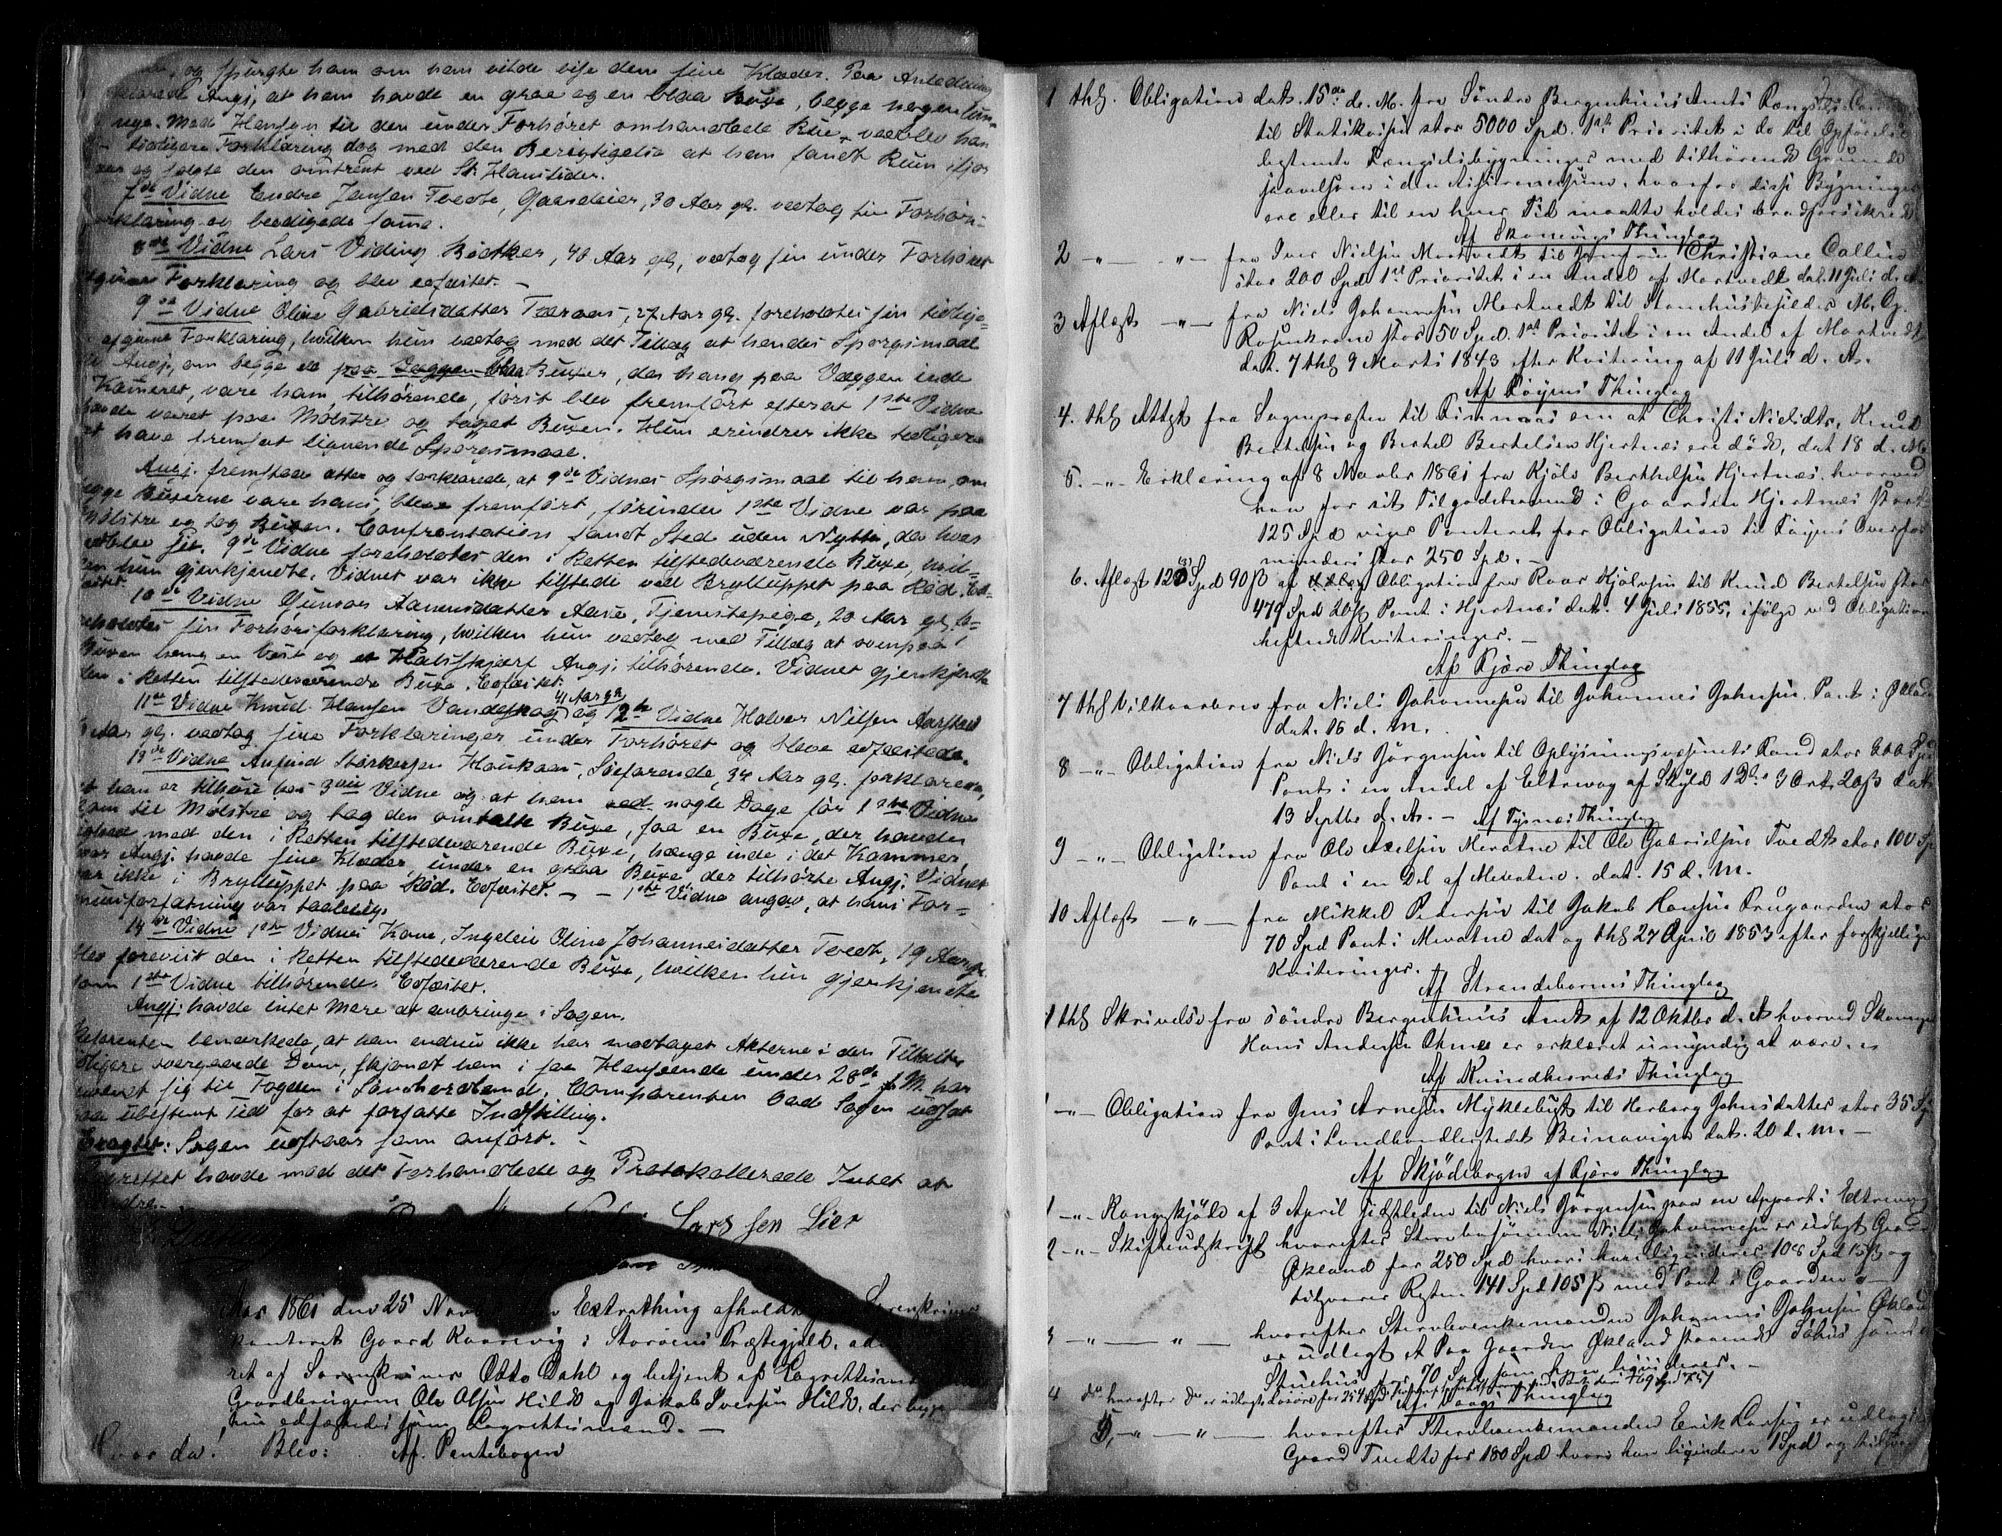 og spurgte ham om han vilde vise dem sine Klæder. Paa Anledning
Angj, at han havde en graa og en blaa Buxe, begge nogenlun-
nye. Med Hensyn til den under Forhøret omhandlede Kue, vedblev han
tidligere Forklaring dog med den Berigtigelse at han fandt Kuen ifjor
og solgte den omtrent ved St. Hanstider.
7de Vidne Endre Jansen Tvedte, Gaardeier, 30 Aar gl. vedtog sin Forhørs-
forklaring og beedigede samme.
8de Vidne Lars Viding Bødker, 40 Aar gl, vedtog sin under Forhøret
afgivne Forklaring og blev edfæstet. -
9de Vidne Oline Gabrielsdatter Tveraas, 27 Aar gl. foreholdtes sin tidlige-
afgivne Forklaring, hvilken hun vedtog med det Tillæg at hendes Spørgsmaal
Angj. om begge de paa Væggen blaa Buxer, der hang paa Væggen inde
Kameret, vare ham tilhørende, først blev fremført efterat 1ste Vidne
havde været paa Mølstre og taget Buxen. Hun erindrer ikke tidligere
at have fremsat lignende Spørgsmaal.
Angj. fremstaar atter og forklarede, at 9de Vidnes Spørgsmaal til ham, om
begge Buxerne vare hans, bleve fremført, førinden 1ste Vidne var paa
Mølstre og tog Buxen. Confrontation fandt Sted uden Nytte, da hver
vedblev sit. 9de Vidne foreholdtes den i Retten tilstedeværende Buxe, hvil-
ken hun gjenkjendte. Vidnet var ikke tilstede ved Brylluppet paa Rød. Ed-
fæstet.
10de Vidne Gunvor Aanensdatter Aase, Tjenestepige, 20 Aar gl. fo-
reholdtes sin Forhørsforklaring, hvilken hun vedtog med Tillæg at ovenpaa
Buxen hang en Vest og et Halsskjært Angj. tilhørende. Vidnet gjenkjendte
den i Retten tilstedeværende Buxe. Edfæstet.
11te Vidne Knud Hansen Vandaskog 41 Aar gl. og 12te Vidne Halvor Nilsen Aarskud
Aar gl. vedtog sine Forklaringer under Forhøret og bleve edfæstede.
13de Vidne Anfind Størkersen Haukaas, Søfarende, 34 Aar gl. forklarede,
at han er tilhuse hos 3die Vidne og at han saa nogle Dage før 1ste Vidne
kom til Mølstre og tog den omtalte Buxe, saa en Buxe, der havde
Lighed med den i Retten tilstedeværende Buxe, hænge inde i det Kammer
hvor Angj. havde sine Klæder, under en graa Buxe der tilhørte Angj. Vidnet
var ikke i Brylluppet paa Rød. Edfæstet. - - 1ste Vidne angav, at hans For-
muesforfatning var taalelig.
14de Vidne 1ste Vidnes Kone, Ingeleiv Oline Johannesdatter Tvedt, 19 Aar gl.
blev foreviist den i Retten tilstedeværende Buxe, hvilken hun gjenkjendte
som 1ste Vidne tilhørende. Edfæstet.
Angj. havde intet Mere at anbringe i Sagen.
Referenten bemærkede, at han endnu ikke har modtaget Akterne i den Tiltaltes
tidligere overgaaede Dom, skjøndt han i saa Henseende under 28de f.M. har
henvendt sig til Fogden i Søndhordland. Comparenten bad Sagen udsat
paa ubestemt Tid for at forfatte Indstilling.
Eragtet: Sagen udstaar som anført. -
Lagrettet havde med det Forhandlede og Protokollerede Intet at
erindre.
Lars sen Lier
Aar 1861 den 25 Nov Extrathing afholdt Sorenskriver
kontoret Gaard Kaarevig i Storøens Præstegjeld, ad
ret af Sorenskriver Otto Dahl og betjent af Lagrettismænd
Gaardbrugerne Ole Olsen Hilde og Jakob Iversen Hilde, der begge
nu edfæstedes som Lagrettismænd. -
Hvor da! Blev: Af Pantebogen
1 thl. Obligation dat. 15de d. M. fra Søndre Bergenhuus Amts
til Statskassen stor 5000 Spd. 1ste Prioritet i de til Opførelse
bestemte Fængselsbygninger med tilhørende Grund
i den Assurancesum, hvorfor disse Bygninger
ere eller til en hver Tid maatte holdes brandforsikrede
Af Skonevigs Thinglag
2 - " - " - fra Iver Nielsen Mortvedt til Jomfrue Christiane Dallin
stor 200 Spd 1ste Prioritet i en Andel af Mortvedt dat. 11 Juli d. A.
3 Aflæst - " - fra Niels Johannesen Mortvedt til Stamhusbesidder M. Og.
Rosenkrone stor 50 Spd. 1ste Prioritet i en Andel af Mortvedt
dat. 7 thl 9 Marts 1843 efter Kvitering af 11 Juli d. A.
Af Føyens Thinglag
4. thl Attest fra Sognepræsten til Finnaas om at Christi Nielsdtr, Knud
Bertelsen og Bertel Bertelsen Hjertnæs ere døde, dat 18 d. M
5. - " - Erklæring af 8 Novbr 1861 fra Kjøls Berthelsen Hjertnæs, hvorved
han for sit Tilgodehavende i Gaarden Hjertnæs stort
125 Spd viger Panteret for Obligation til Føiens Overfor-
minderi stor 250 Spd. -
6. Aflæst 123 Spd 90 ß af Obligation fra Roar Kjølsen til Knud Bertelsen stor
479 Spd 20 ß Pant i Hjertnæs dat. 4 Juli 1855, ifølge ved Obligation
heftende Kviteringer. -
Af Fjære Thinglag
7 thl Vilkaarbrev fra Niels Johannesen til Johannes Johnsen, Pant i Økland
dat. 16 d. M.
8 - " - Obligation fra Niels Jørgensen til Oplysningsvæsenets Fond stor 600 Spd
Pant i en Andel af Eltrevog af Skyld 1 Dl. 3 Ort 20 ß dat
13 Septbr d. A. - Af Tysnes Thinglag
9 - " - Obligation fra Ole Axelsen Mevatne til Ole Gabrielsen Tvedt stor 100 Sp
Pant i en Del af Mevatne. dat. 15 d. M.
10 Aflæst - " - fra Mikkel Pedersen til Jakob Hansen Frugaarden stor
70 Spd Pant i Mevatne dat og thl 27 April 1853 efter forskjellige
Kviteringer.
Af Strandebarms Thinglag
1 thl Skrivelse fra Søndre Bergenhuus Amt af 12 Oktbr d. A. hvorved
Hans Andersen Omes er erklæret umyndig at være. -
Af Kvindherreds Thinglag
1 - " - Obligation fra Jens Arnesen Myklebust til Herborg Johnsdatter stor 35 Sp
Pant i Landhandlerstedet Beinavigen dat. 20 d. M. -
Af Skjødebogen af Fjære Thinglag
1 - " - Kongeskjøde af 3 April sidstleden til Niels Jørgensen paa en Appart i Eltrevog
2 - " - Skifteudskrift hvorefter Stervbosønnen Niels Johannesen er udlagt Gaard
Økland for 250 Spd hvori han ligviderer 108 Spd 15 ß og
tilsvarer Resten 141 Spd 105 ß med Pant i Gaarden -
3 - " - " - hvorefter Stervboenkemanden Johannes Johnsen Økland
er udlagt et Paa Gaarden Økland staaende Søhus samt
Stuehus for 70 Spd som han ligviderer. -
4 do hvorefter do er udlagt Løsøre for 254 Spd
Af Vaags Thinglag
5, - " - " - hvorefter Stervboenkemanden Erik Larsen er udlagt
Gaard Tvedte for 180 Spd hvori han ligviderer 1 Spd og tilsvar